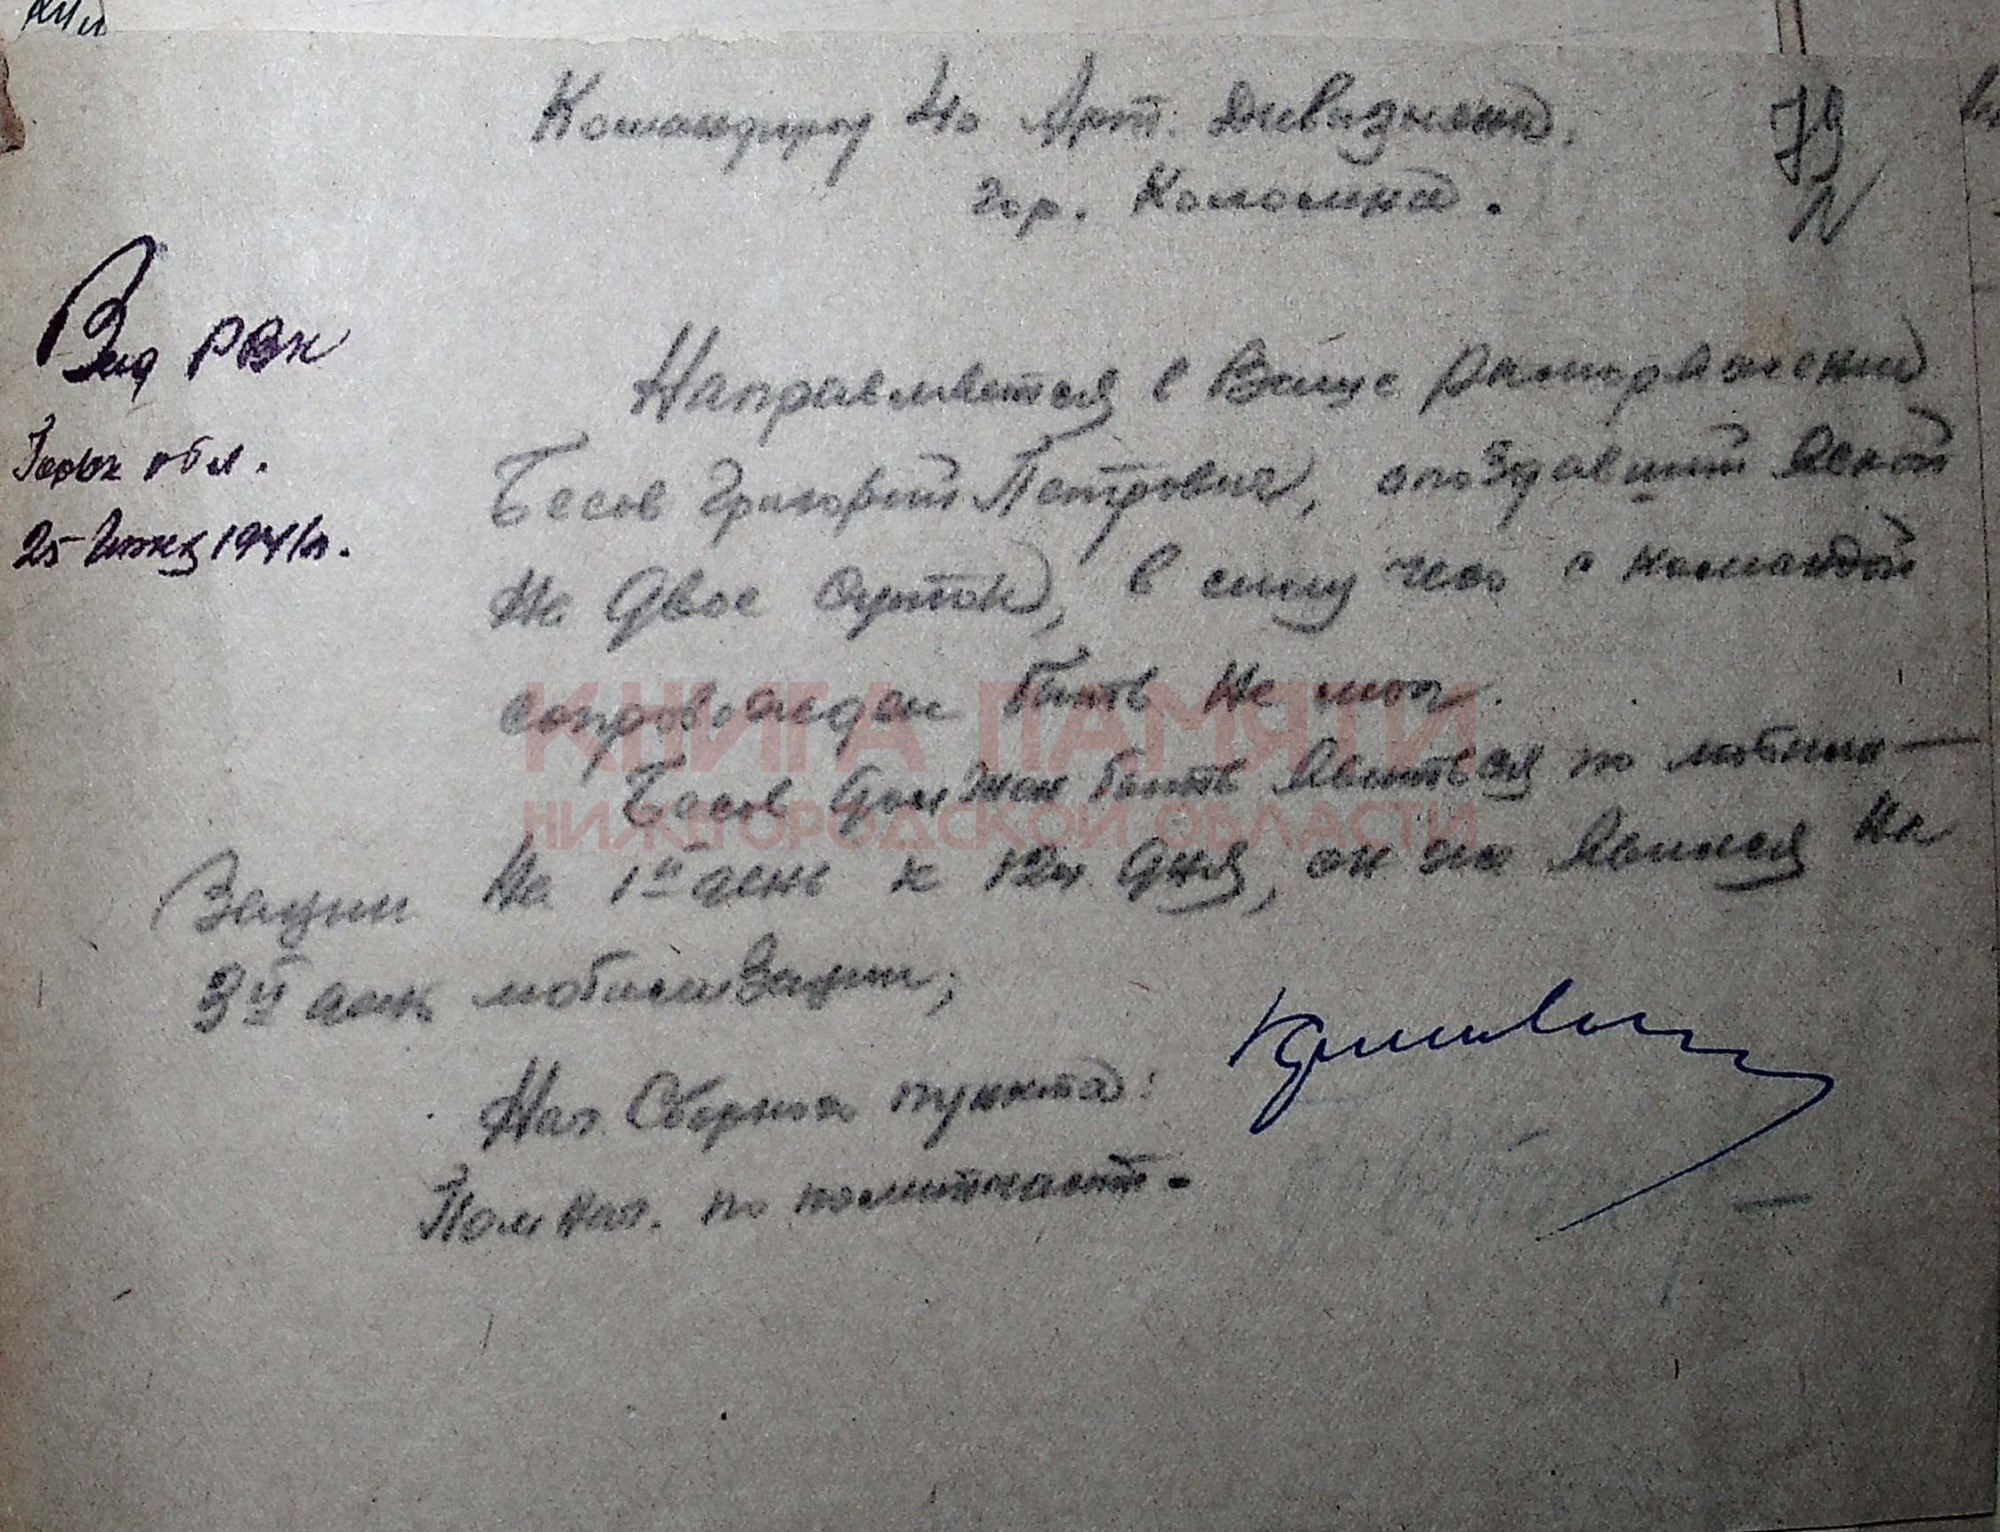 Командиру 4го Арт. Дивизиона.
гор. Коломна.
79
РВК
Горьк обл.
25 Июня 1941 г.
Направляется в Ваше распоряжение
Бесов Григорий Петрович, опоздавший явкой
на двое суток, в силу чего с командой
сопровожден быть не мог.
Бесов должен быть явиться по мобили-
зации на 1й день к 12ч дня, он же явился на
3й день мобилизации;
Нач. Сборного пункта:
Пом нач. по политчасти -
КНИГА ПАМЯТИ
НИЖЕГОРОДСКОЙ ОБЛАСТИ